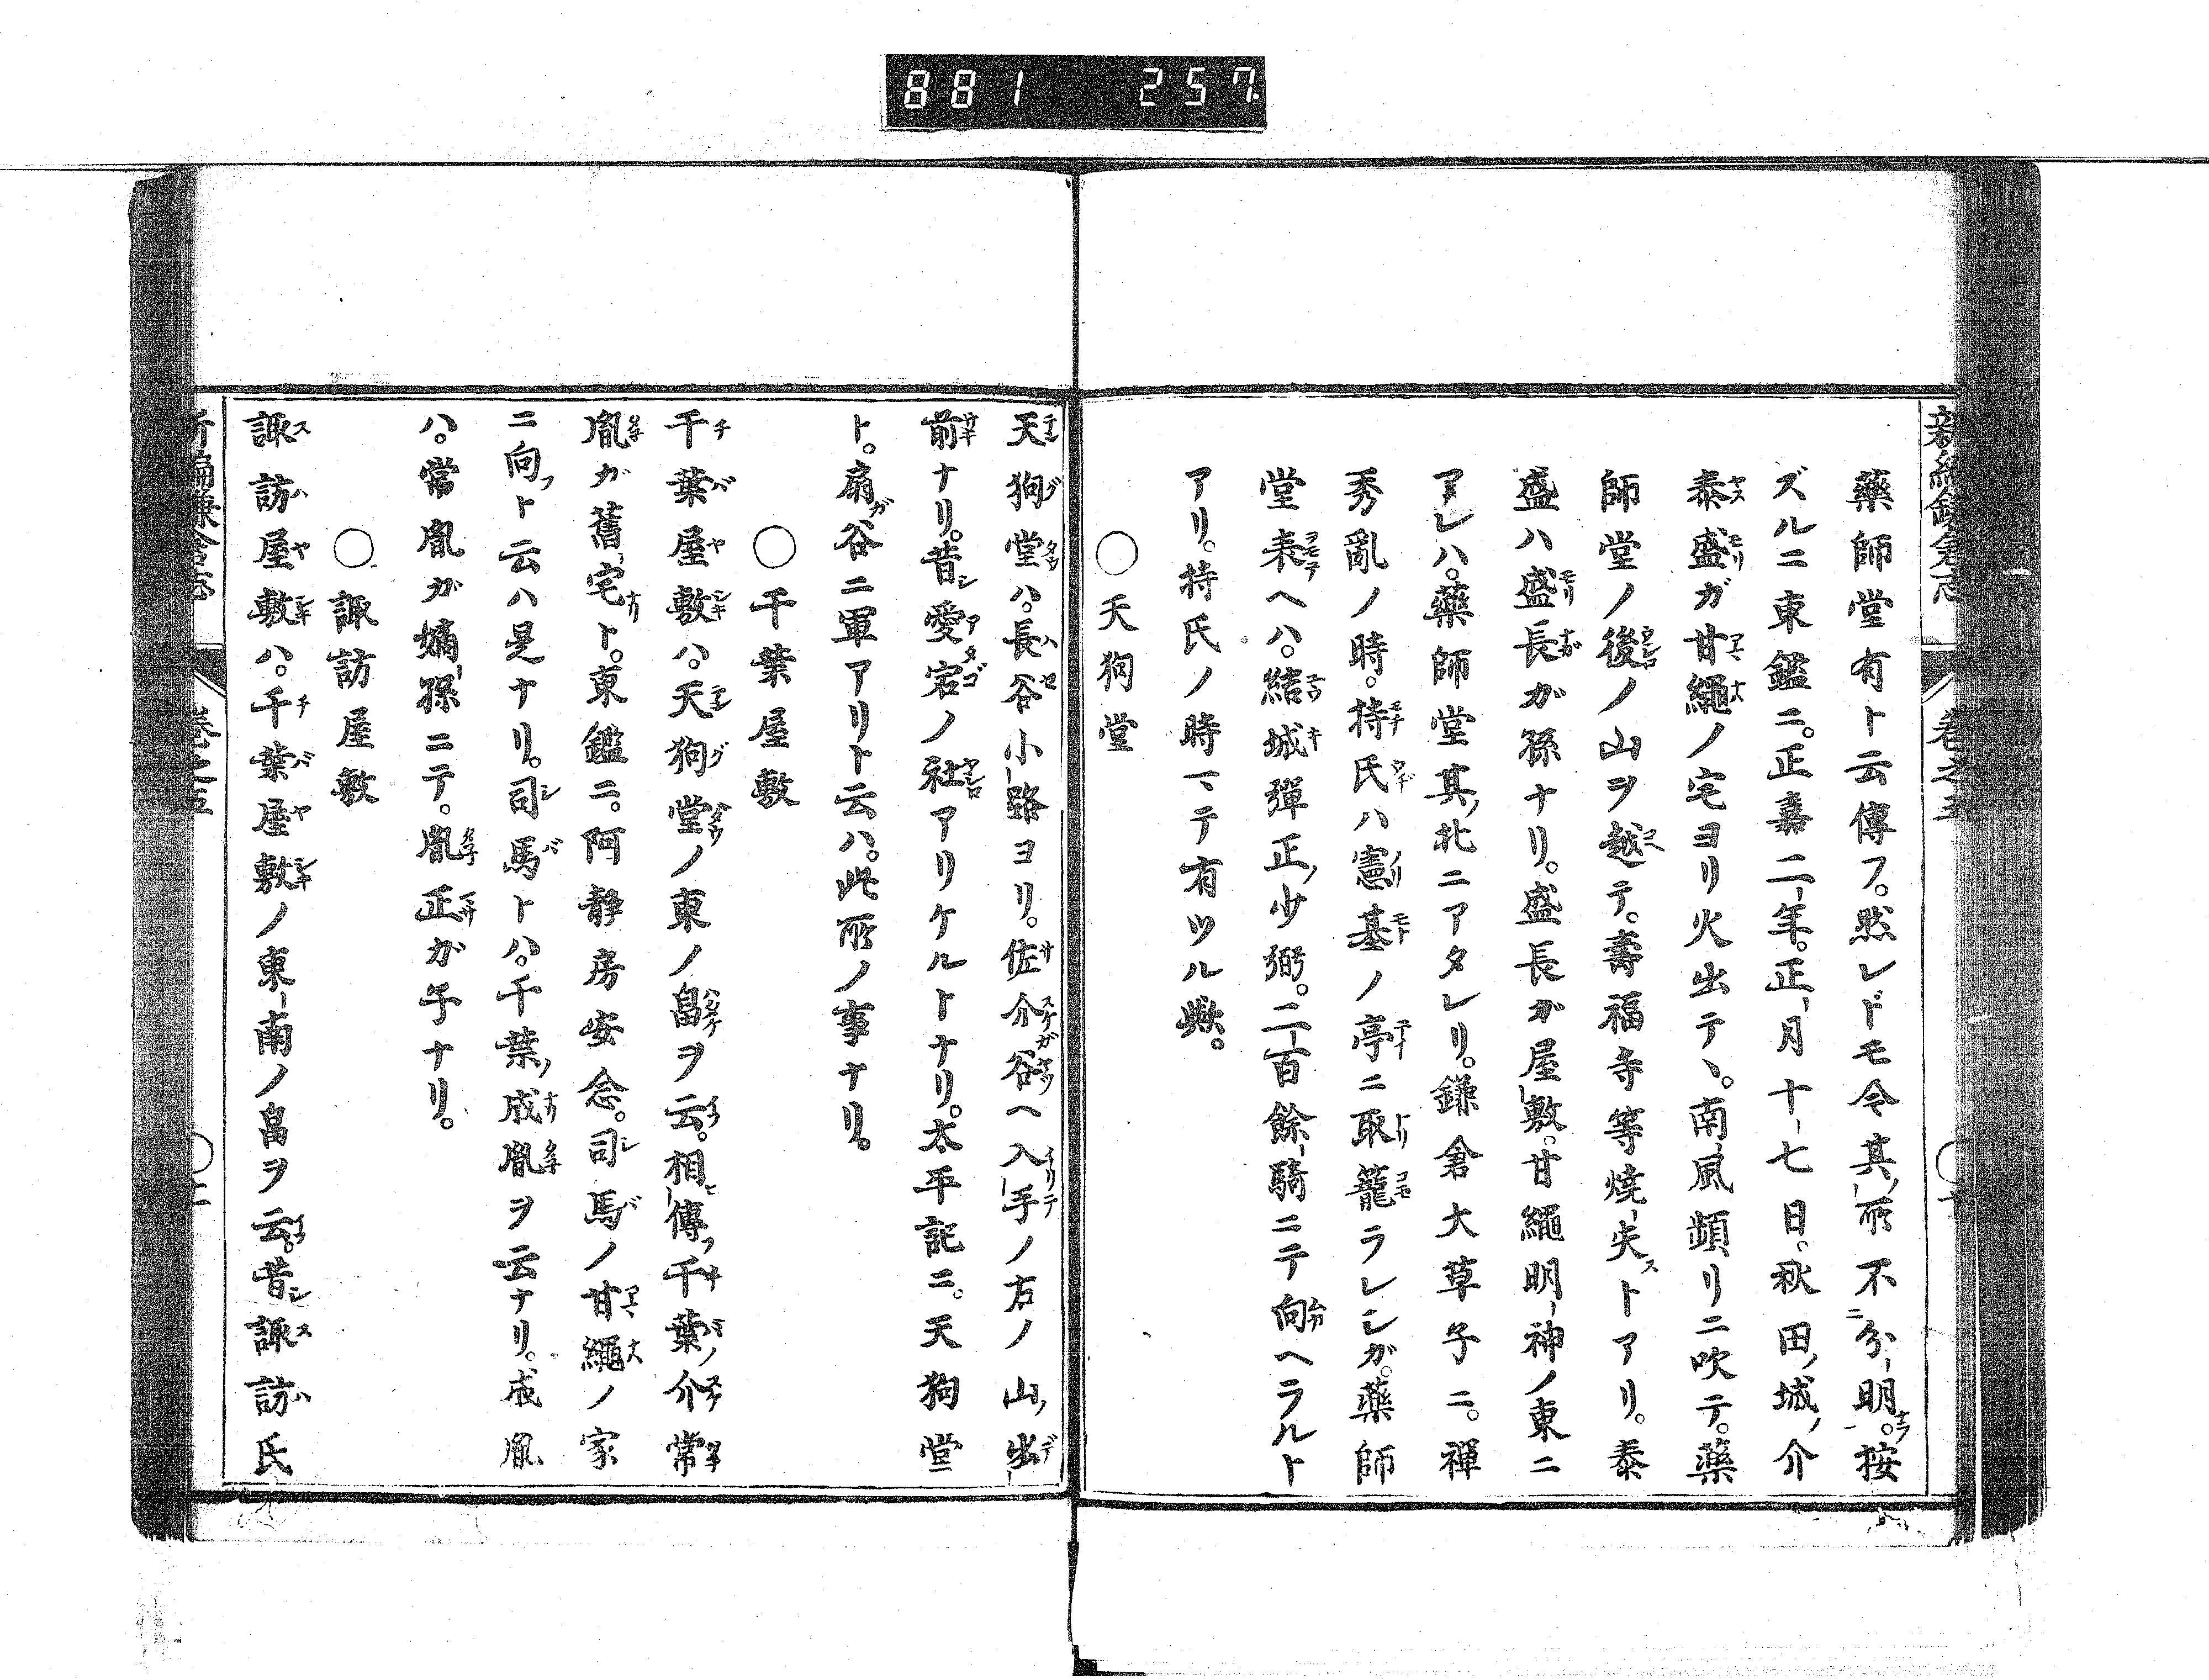 881 257
新編鎌倉志 卷之五
藥師堂有ト云傳フ。然レドモ今其所不分明。按
ズルニ東鑑ニ。正嘉二年。正月十七日。秋田ノ城ノ介
泰盛ガ甘繩ノ宅ヨリ火出テヽ。南風頻リニ吹テ。藥
師堂ノ後ノ山ヲ越テ。壽福寺等燒失ストアリ。泰
盛ハ盛長ガ孫ナリ。盛長ガ屋敷。甘繩明神ノ東ニ
アレハ。藥師堂其ノ北ニアタレリ。鎌倉大草子ニ。禪
秀亂ノ時。持氏ハ憲基ノ亭ニ取籠ラレシガ。藥師
堂表ヘハ。結城彈正ノ少弼。二百餘騎ニテ向ヘラルト
アリ。持氏ノ時マテ有ツル歟。
○天狗堂
天狗堂ハ。長谷小路ヨリ。佐介谷ヘ入手ノ右ノ山ノ出
前ナリ。昔シ愛宕ノ社アリケルトナリ。太平記ニ。天狗堂
ト。扇ガ谷ニ軍アリト云ハ。此所ノ事ナリ。
○千葉屋敷
千葉屋敷ハ。天狗堂ノ東ノ畠ヲ云。相傳フ千葉ノ介常
胤ガ舊宅ナリト。東鑑ニ。阿靜房安念。司馬ノ甘繩ノ家
ニ向フト云ハ是ナリ。司馬トハ。千葉ノ成胤ヲ云ナリ。成胤
ハ。常胤ガ嫡孫ニテ。胤正ガ子ナリ。
○諏訪屋敷
諏訪屋敷ハ。千葉屋敷ノ東南ノ畠ヲ云。昔シ諏訪氏
新編鎌倉志 卷之五